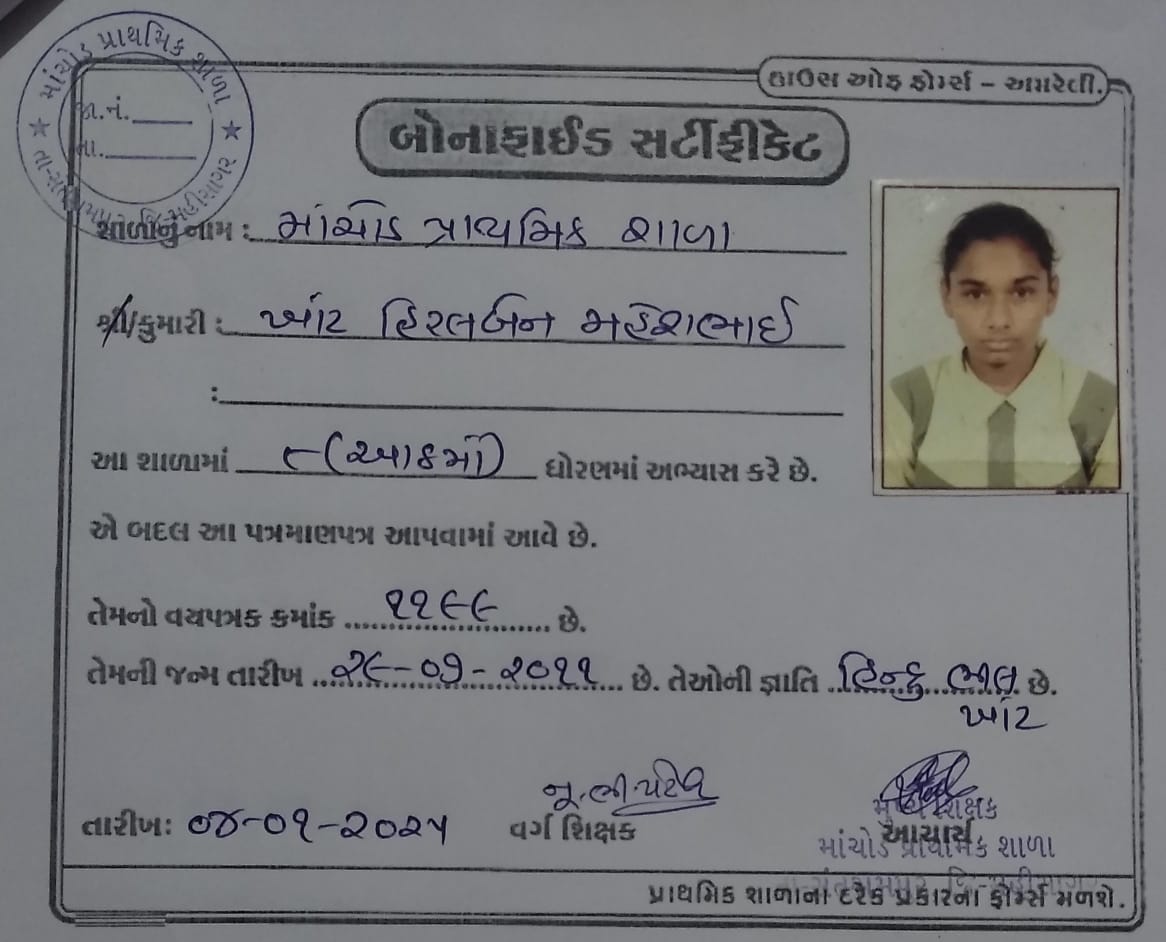 માંચોડ પ્રાથમિક શાળા
જા.નં.
તા.
હાઉસ ઓફ ફોર્મ્સ – અમરેલી.
બોનાફાઈડ સર્ટીફીકેટ
શાળાનું નામ : માંચોડ પ્રાથમિક શાળા
શ્રી/કુમારી : ખાંટ હિરલબેન મહેશભાઈ
:
આ શાળામાં ૮ (આઠમાં) ધોરણમાં અભ્યાસ કરે છે.
એ બદલ આ પત્રમાણપત્ર આપવામાં આવે છે.
તેમનો વયપત્રક ક્રમાંક ૧૧૯૯ છે.
તેમની જન્મ તારીખ ૨૯-૦૭-૨૦૧૧ છે. તેઓની જ્ઞાતિ હિન્દુ ભીલ છે.
ખાંટ
તારીખ: ૦૪-૦૧-૨૦૨૫
વર્ગ શિક્ષક
મુખ્ય શિક્ષક
આચાર્ય
માંચોડ પ્રાથમિક શાળા
પ્રાથમિક શાળાનાં દરેક પ્રકારનાં ફોર્મ્સ મળશે.